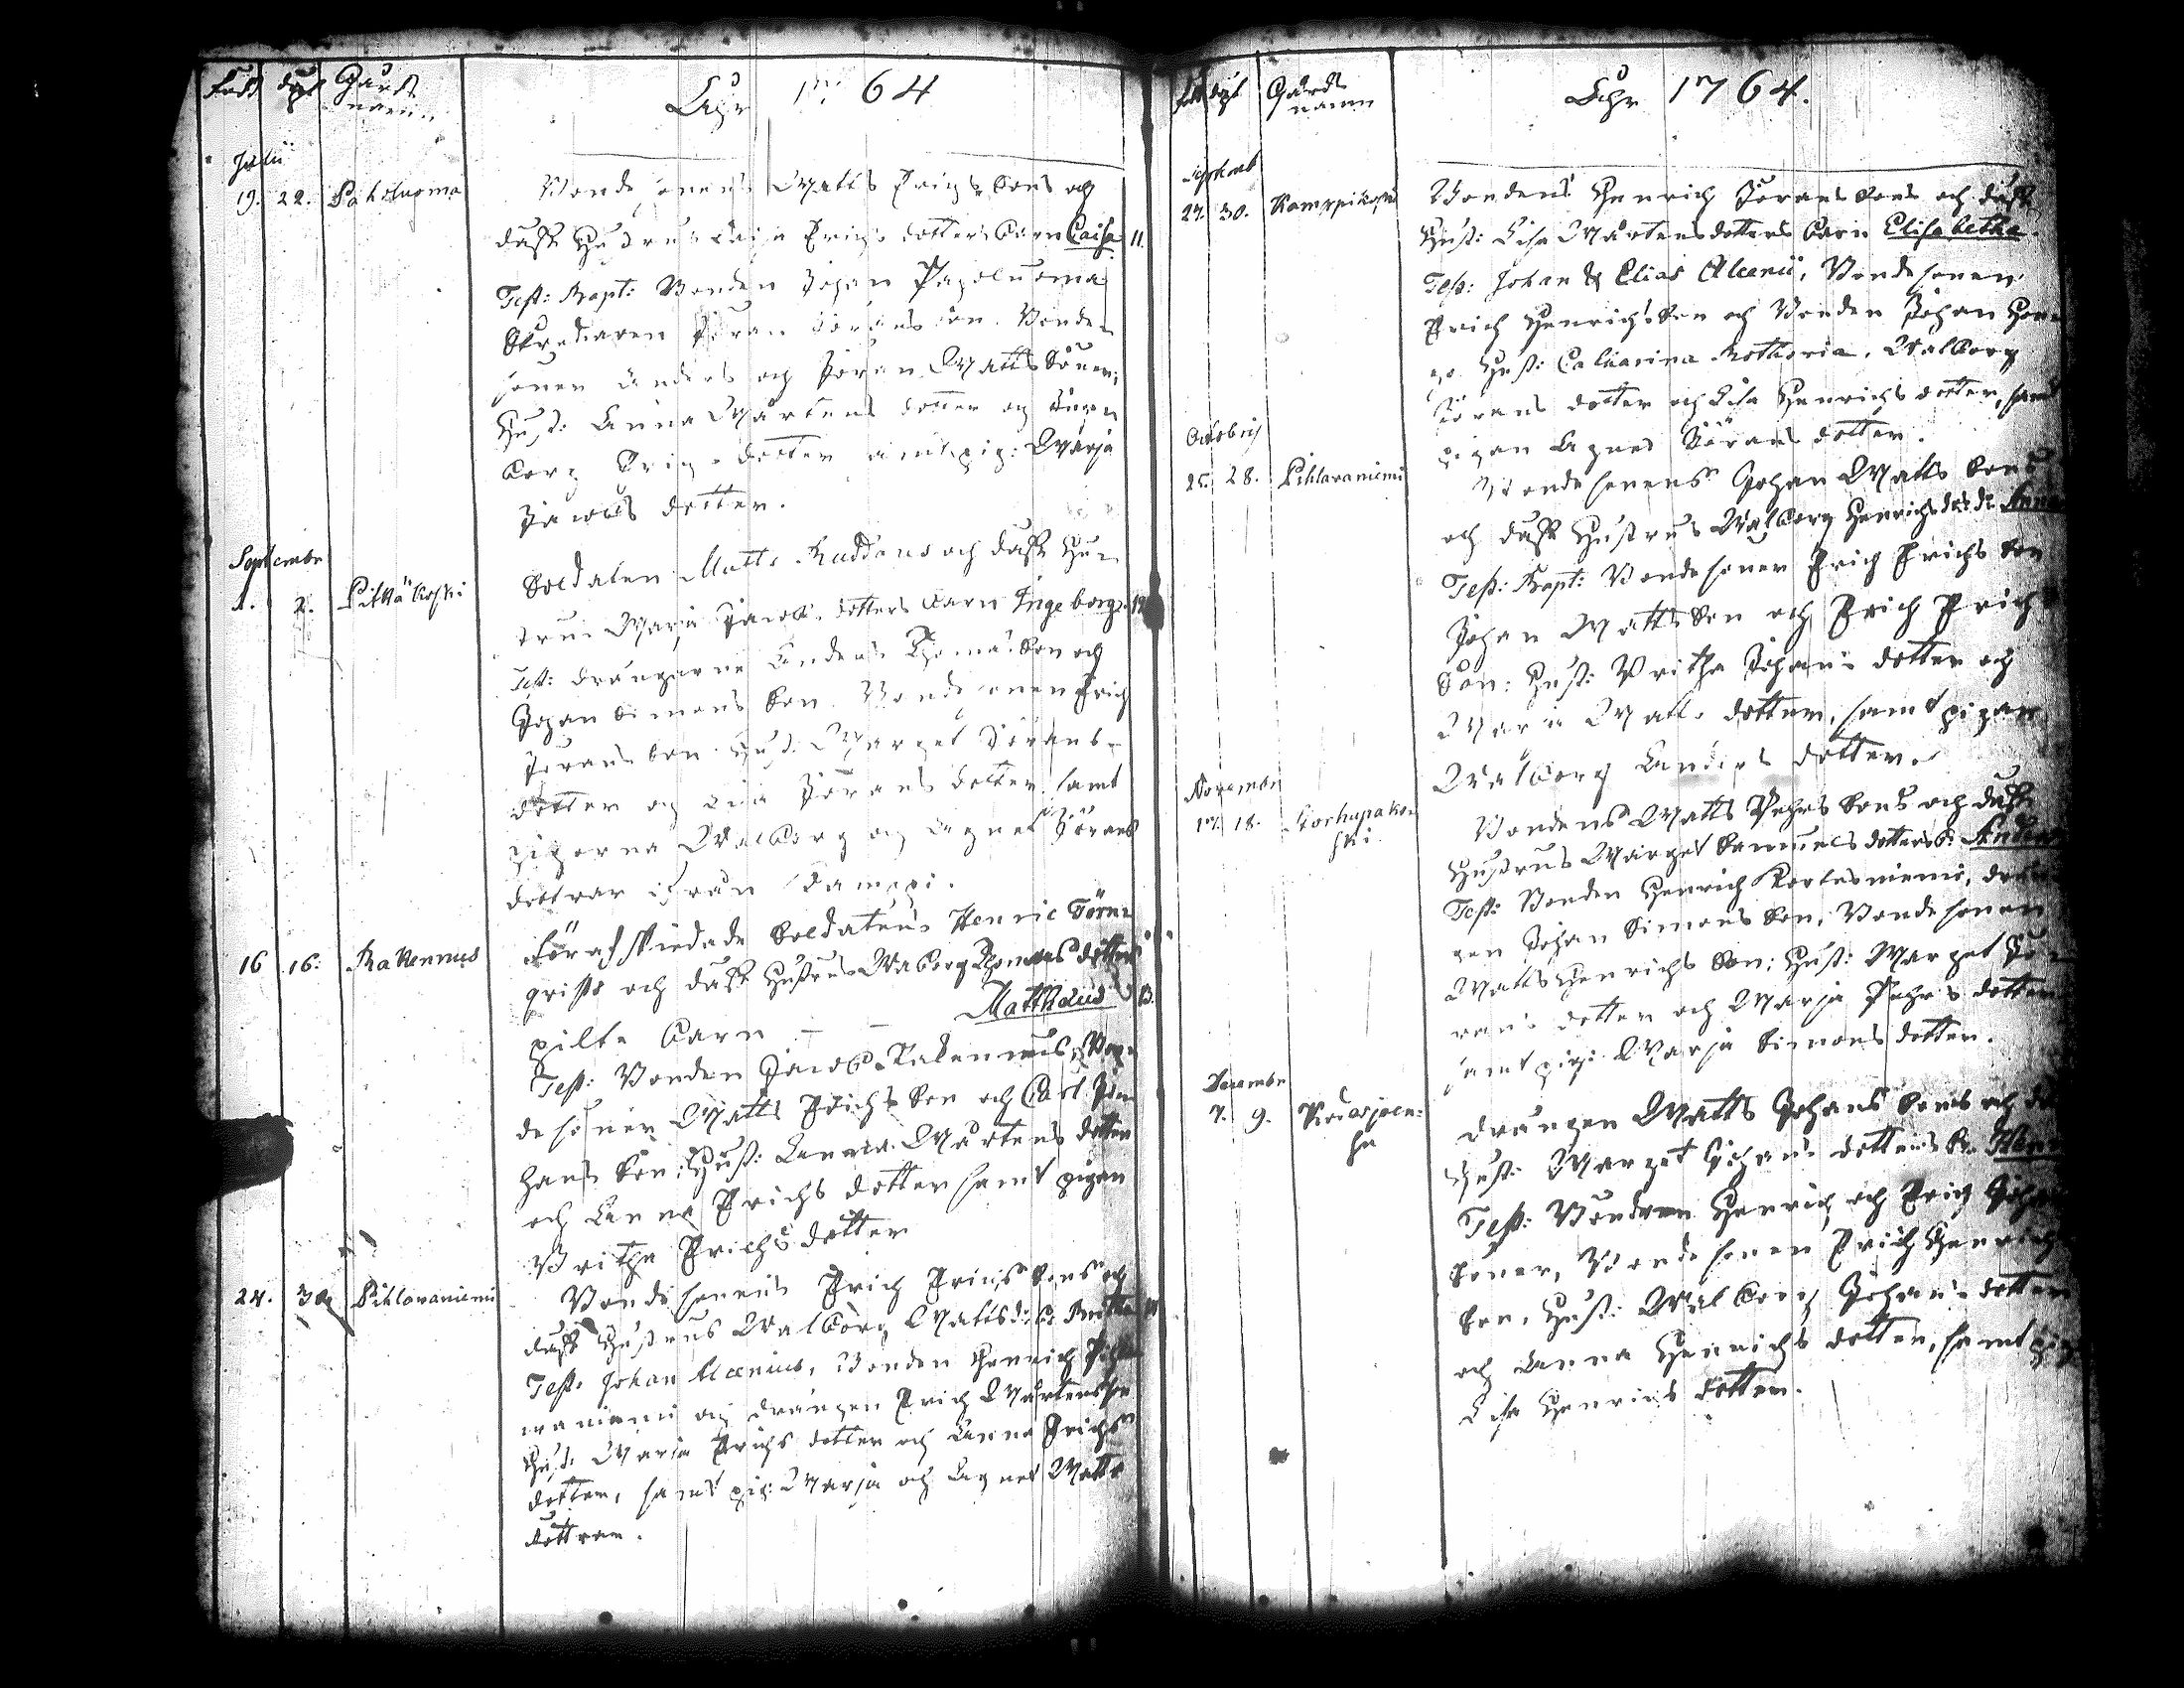 Född döpt Gårds
namn
Åhr 1764
Julii
19. 22. Paholuoma
Bondesonens Matts Erichs Sons och
dess Hustrus Caisa Erichs dotters barn Caisa 11.
Test: Bapt: Bonden Johan Paholuoma
Skreddaren Jöran Jörans Son. Bonde
sonen Anders och Jöran Matts Söner;
Hust: Anna Mårtens dotter och
borg Erichs dotter samt pig: Marja
Jacobs dotter.
Septembr
1. 2. Pitkäkoski
Soldaten Matts Raddons och dess Hus
trus Marja Jacobs dotters barn Ingeborg. 12
Test: drängarne Anders Thomæ Son och
Johan Simons Son. Bondesonen Erich
Jörans Son. Hust: Marget Jörans
dotter och Lisa Jörans dotter, samt
pigorna Walborg och Agnes Jörans
dottrar ifrån Kamppi.
16 16. Rakennus
Förafskiedade Soldatens Henric Törn
qvists och dess Hustrus Walborg Thomas dotters
pilte barn — — Matthæus 13.
Test: Bonden Jacob Rakennus, Bon
desonen Matts Erichs Son och Carl Jo
hans Son: Hust: Anna Mårtens dotter
och Anna Erichs dotter samt pigan
Britha Erichs dotter
24. 30 Pihlavaniemi
Bondesonens Erich Erichs Sons och
dess Hustrus Walborg Matts d: b: Britha
Test: Johan Alcenius, Bonden Henrich Pihla
waniemi och drängen Erich Mårtensson
Hust: Maria Erichs dotter och Anna Erichs
dotter, samt pig: Marja och Agnes Matts
dottrar.
Född döpt Gårds
namn
Åhr 1764.
Septemb
27. 30. Kamppikoski
Bondens Henrich Jörans Sons och dess
Hust: Lisa Mårtensdotters barn Elisabetha.
Test: Johan & Elias Alcenii, Bondesonen
Erich Henrichs Son och Bonden Johan
Hust: Catharina Rothovia, Walborg
Jörans dotter och Lisa Henrichs dotter, samt
pigan Agnes Jörans dotter.
Octobris
25. 28. Pihlavaniemi
Bondesonens Johan Matts Sons
och dess Hustrus Walborg Henrichs dot: b:
Test: Bapt: Bondesonen Erich Erichs Son
Johan Matts Son och Erich Erichs
Son: Hust: Britha Johans dotter och
Maria Matts dotter, samt pigan
Walborg Anders dotter.
Novembr
17. 18. Korhupakos
ski
Bondens Matts Pehrs Sons och dess
Hustrus Marget Samuels dotters b: Anders
Test: Bonden Henrich Kortesniemi, drän
gen Johan Simons Son, Bondesonen
Matts Henrichs Son; Hust: Marget Jö
rans dotter och Marja Pehrs dotter
samt pig: Marja Simons dotter.
Decembr
7. 9.
Drängen Matts Johans Sons och
Hust: Marget Johans dotters b:
Test: Bönderne Henrich och Erich Johans
Söner, Bondesonen Erich Henrichs
Son, Hust: Walborg Johans dotter
och Anna Henrichs dotter, samt pig
Lisa Henrics dotter.